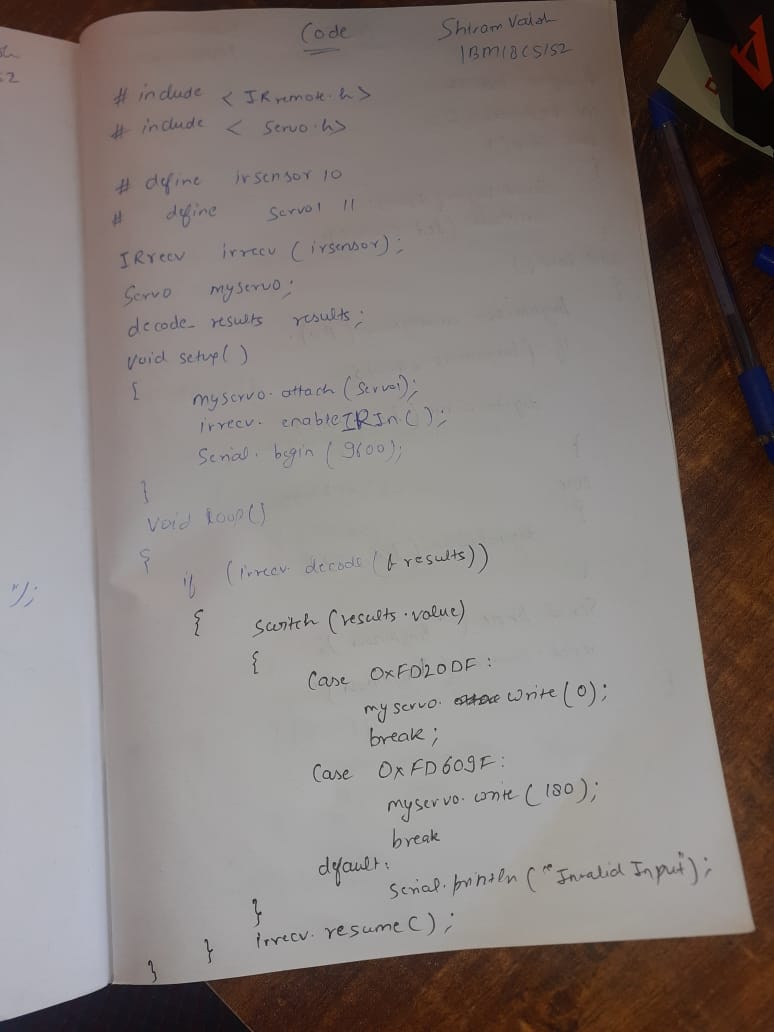 Code
Shiram Valsh
1BM18CS152
# include < IRremote.h>
# include < Servo.h>
# define irsensor 10
# define servo1 11
IRrecv irrecv (irsensor);
Servo myservo;
decode_results results;
void setup()
{
myservo.attach (servo1);
irrecv. enableIRIn();
Serial. begin (9600);
}
void loop()
{
if (irrecv. decode (& results))
{ switch (results.value)
{
Case 0xFD20DF :
myservo. write (0);
break;
Case 0xFD609F:
myservo. write (180);
break
default:
Serial.println ("Invalid Input");
}
} irrecv. resume();
}
52
");